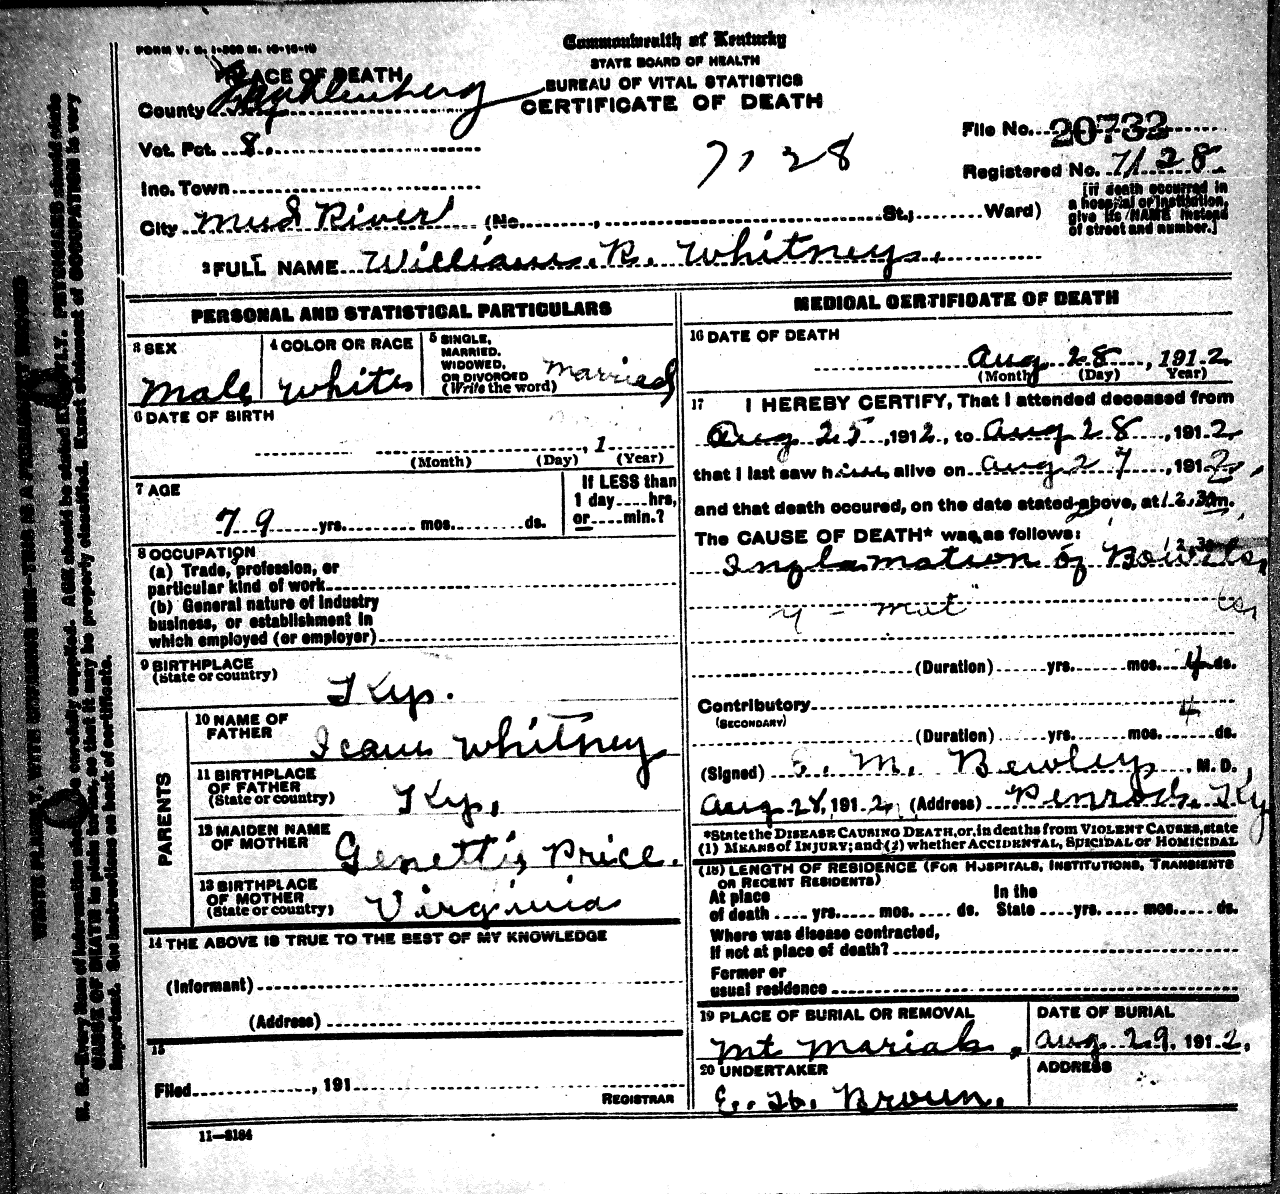 FORM V. S. 1-300 M. 10-10-10
Commonwealth of Kentucky
STATE BOARD OF HEALTH
BUREAU OF VITAL STATISTICS
CERTIFICATE OF DEATH
PLACE OF DEATH
County Muhlenberg
Vot. Pct. 8.
Inc. Town
City Mud River (No. , St.; Ward)
7128
File No. 20732
Registered No. 7128
[if death occurred in
a hospital or institution,
give its NAME instead
of street and number.]
2 FULL NAME William. R. Whitney.
PERSONAL AND STATISTICAL PARTICULARS
3 SEX
Male
4 COLOR OR RACE
White
5 SINGLE,
MARRIED,
WIDOWED,
OR DIVORCED
(Write the word)
married
6 DATE OF BIRTH
, 1
(Month) (Day) (Year)
7 AGE
79 yrs. mos. ds.
If LESS than
1 day hrs,
or min.?
8 OCCUPATION
(a) Trade, profession, or
particular kind of work
(b) General nature of industry
business, or establishment in
which employed (or employer)
9 BIRTHPLACE
(State or country)
Ky.
PARENTS
10 NAME OF
FATHER
Whitney
11 BIRTHPLACE
OF FATHER
(State or country)
Ky.
12 MAIDEN NAME
OF MOTHER
Price.
13 BIRTHPLACE
OF MOTHER
(State or country)
Virginia
14 THE ABOVE IS TRUE TO THE BEST OF MY KNOWLEDGE
(Informant)
(Address)
15
Filed , 191
REGISTRAR
11—3184
MEDICAL CERTIFICATE OF DEATH
16 DATE OF DEATH
Aug 28, 1912
(Month) (Day) (Year)
17 I HEREBY CERTIFY, That I attended deceased from
Aug 25, 1912, to Aug 28, 1912
that I last saw him alive on Aug 27, 1912,
and that death occured, on the date stated above, at 12.30 m.
The CAUSE OF DEATH* was as follows:
12.30
Inflamation of Bowels,
(Duration) yrs. mos. 4 ds.
Contributory
(SECONDARY)
4
(Duration) yrs. mos. ds.
(Signed) E. M. Bewley, M. D.,
Aug 28, 1912, (Address) Penrod, Ky
*State the DISEASE CAUSING DEATH, or, in deaths from VIOLENT CAUSES, state
(1) MEANS of INJURY; and (2) whether ACCIDENTAL, SUICIDAL or HOMICIDAL
(18) LENGTH OF RESIDENCE (FOR HOSPITALS, INSTITUTIONS, TRANSIENTS
OR RECENT RESIDENTS)
At place In the
of death yrs. mos. ds. State yrs. mos. ds.
Where was disease contracted,
if not at place of death?
Former or
usual residence
19 PLACE OF BURIAL OR REMOVAL
Mt Mariah.
DATE OF BURIAL
Aug. 29, 1912.
20 UNDERTAKER
E. H. Broun.
ADDRESS
WRITE PLAINLY, WITH UNFADING INK—THIS IS A PERMANENT RECORD
N. B.—Every item of information should be carefully supplied. AGE should be stated EXACTLY. PHYSICIANS should state
CAUSE OF DEATH in plain terms, so that it may be properly classified. Exact statement of OCCUPATION is very
important. See instructions on back of certificate.